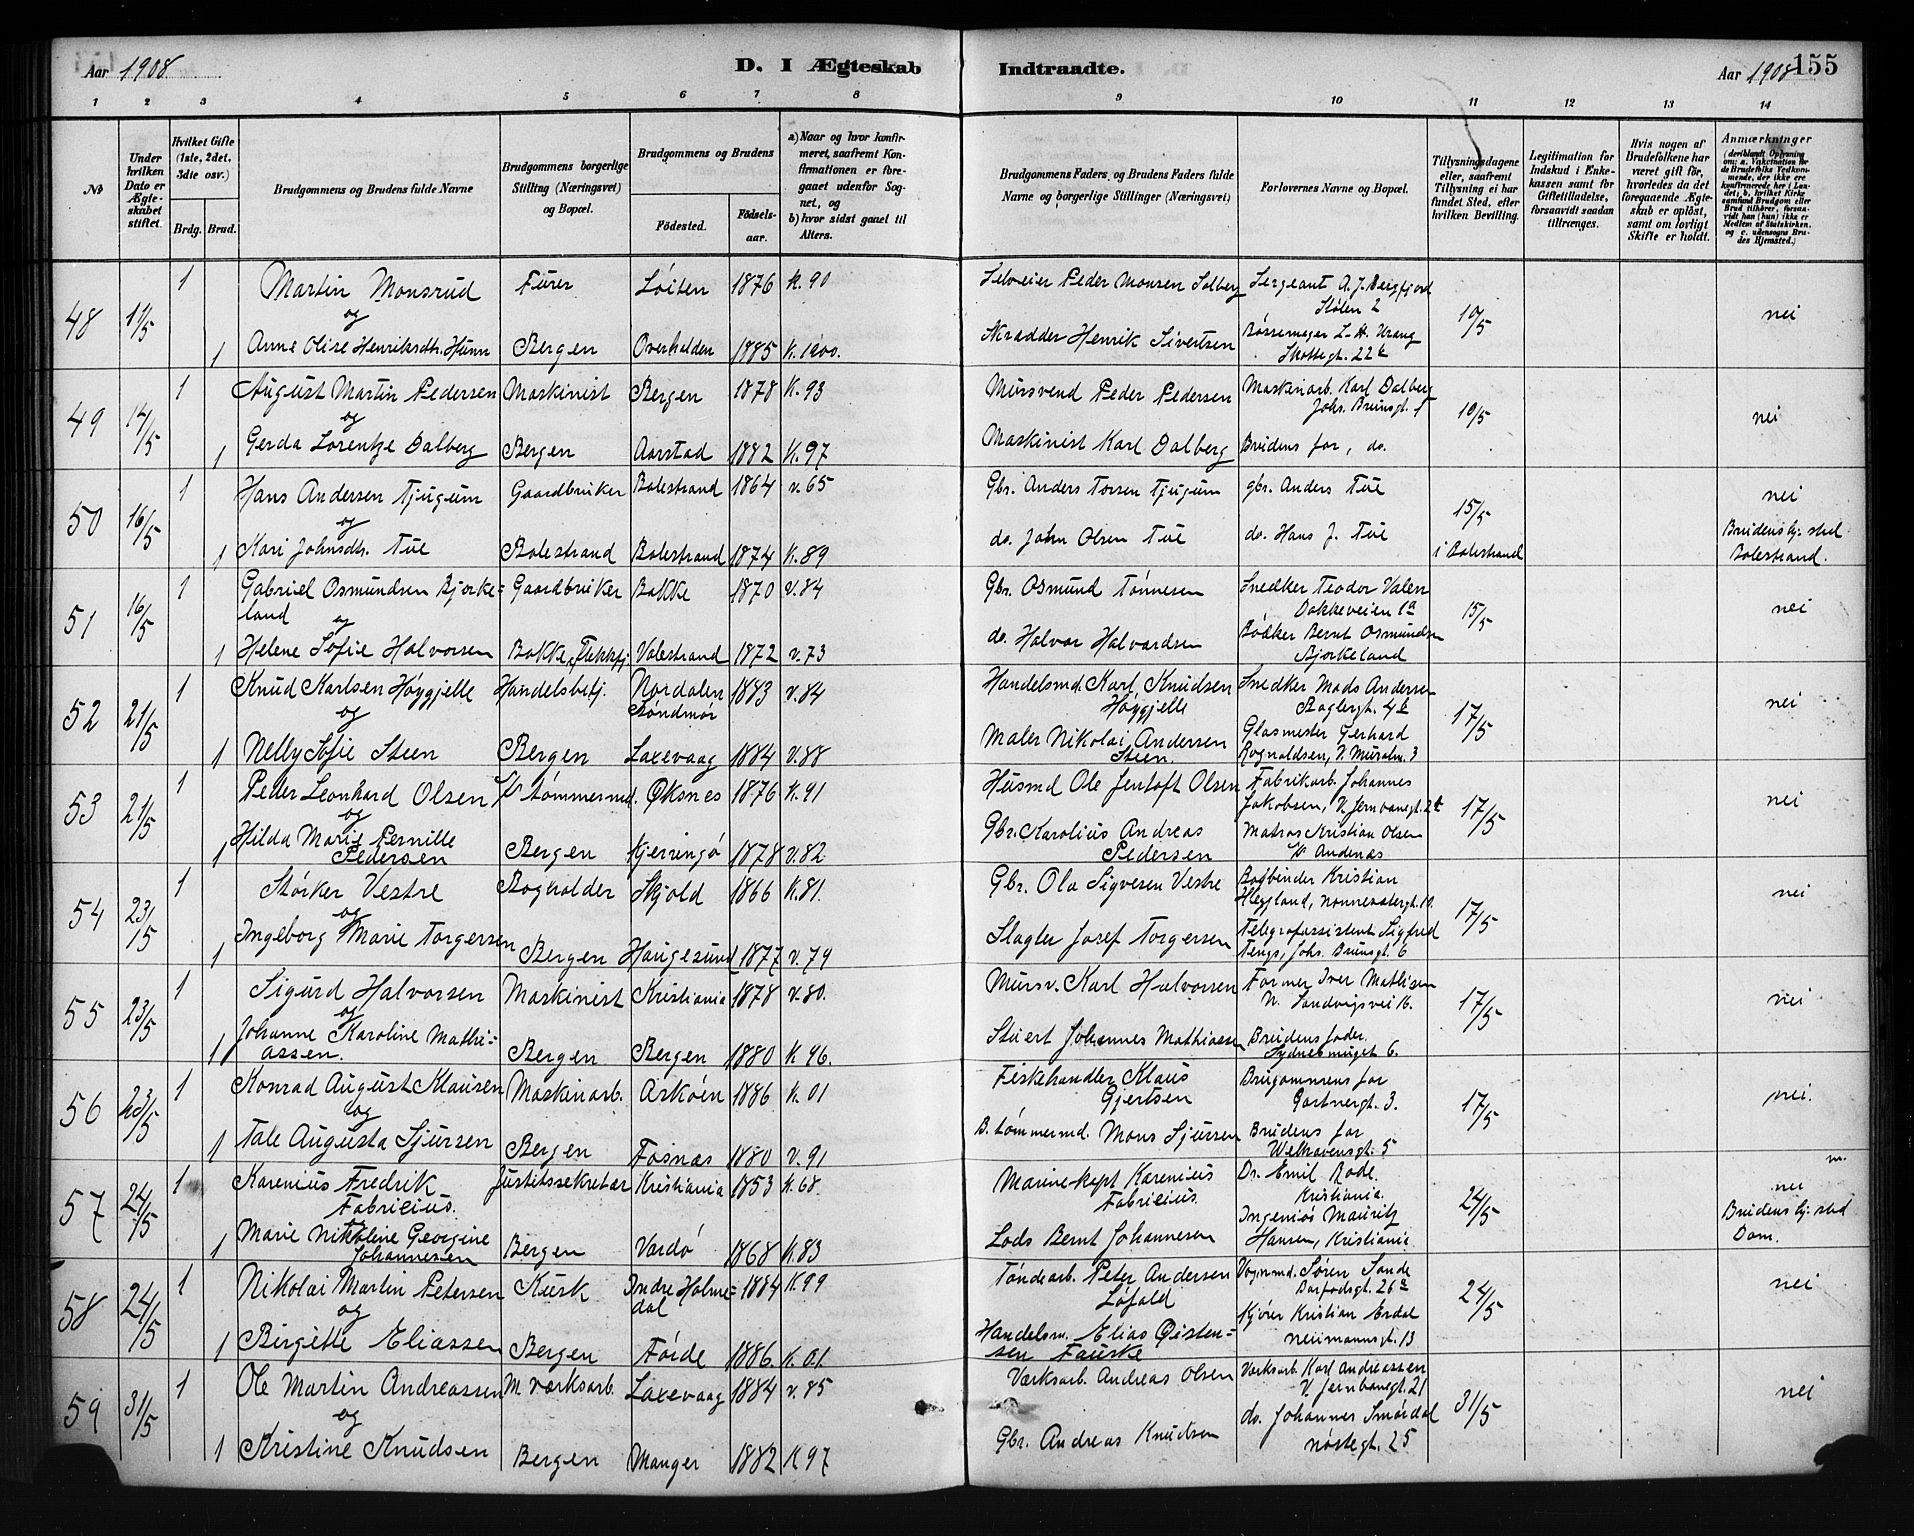 Aar 1908
D. I Ægteskab
Indtraadte.
Aar 1908
155
1 2 3 4 5 6 7 8 9 10 11 12 13 14
No
Under hvilken Dato er Ægteskabet stiftet.
Hvilket Gifte (1ste, 2det, 3die osv.)
Brdg. Brud.
Brudgommens og Brudens fulde Navne
Brudgommens borgerlige Stilling (Næringsvei) og Bopæl.
Brudgommens og Brudens
Födested.
Födselsaar.
a) Naar og hvor konfirmeret, saafremt Konfirmationen er foregaaet udenfor Sognet, og
b) hvor sidst gaaet til Alters.
Brudgommens Faders og Brudens Faders fulde Navne og borgerlige Stillinger (Næringsvei)
Forlovernes Navne og Bopæl.
Tillysningsdagene eller, saafremt Tillysning ei har fundet Sted, efter hvilken Bevilling.
Legitimation for Indskud i Enkekassen samt for Giftetilladelse, forsaavidt saadan tiltrænges.
Hvis nogen af Brudefolkene har været gift før, hvorledes da det foregaaende Ægteskab er opløst, samt om lovligt Skifte er holdt.
Anmærkninger (deriblandt Oplysning om: a. Vakcination for de Brudefolks Vedkommende, der ikke ere konfirmerede her i Landet; b. hvilket Kirkesamfund Brudgom eller Brud tilhører, forsaavidt han (hun) ikke er Medlem af Statskirken, og c. udensogns Brudes Hjemsted.)
48 11/5 1 Martin Monsrud Furer Löiten 1876 K. 90 Selveier Peder Monsen Solberg Sergeant A. J. Bergfjord Stølen 2 10/5 nei
og
1 Anne Olise Henriksdtr. Hunn Bergen Overhalden 1885 K. 1900. Skradder Henrik Sivertsen Bøssemager L. H. Urang Skottegt. 22b
49 14/5 1 August Martin Pedersen Maskinist Bergen 1878 K. 93 Mursvend Peder Pedersen Maskinarb. Karl Dalberg Johs. Brunsgt. 1 10/5 nei
og
1 Gerda Lorentze Dalberg Bergen Aarstad 1882 K. 97 Maskinist Karl Dalberg Brudens far, do.
50 16/5 1 Hans Andersen Tjugum Gaardbruker Balestrand 1864 v. 65 Gbr. Anders Torsen Tjugum gbr. Anders Tue 15/5 nei
og
1 Kari Johnsdtr. Tue Balestrand Balestrand 1874 K. 89 do. John Olsen Tue do. Hans J. Tue i Balestrand Brudens hj. sted Balestrand.
51 16/5 1 Gabriel Osmundsen Bjorke= Gaardbruker Bakke 1870 v. 84 Gbr. Osmund Tönnesen Snedker Teodor Valen Dokkeveien 1a 15/5 nei
land og
1 Helene Sofie Halvorsen Bakke, Flekkfj. Valestrand 1872 v. 73 do. Halvor Halvardsen Bödker Bernt Osmundsen Bjorkeland
52 21/5 1 Knud Karlsen Höygjelle Handelsbetj. Nordalen Söndmør 1883 v. 84 Handelsmd. Karl Knudsen Höygjelle Snedker Mads Andersen Baglergt. 4b 17/5 nei
og
1 Nelly Sofie Steen Bergen Laxevaag 1884 v. 88 Maler Nikolai Andersen Steen. Glasmester Gerhard Rognaldsen, N. Muralm. 3
53 21/5 1 Peder Leonhard Olsen tömmermd. Øksnes 1876 K. 91 Husmd Ole Jentoft Olsen Fabrikarb. Johannes Jakobsen, N. Jernbanegt. 17/5 nei
og
1 Hilda Marie Pernille Pedersen Bergen Kjerringö 1878 v. 82 Gbr. Karolius Andreas Pedersen Matros Kristian Olsen Andenæs
54 23/5 1 Störker Vestre Bogholder Skjold 1866 K. 81. Gbr. Ola Sigvesen Vestre Bogbinder Kristian Hegland, Nonneseter gt. 17/5 nei
og
1 Ingeborg Marie Torgersen Bergen Haugesund 1877 v. 79 Slagter Josef Torgersen Telegrafassistent Sigfred Tengs, Johs. Brunsgt 6
55 23/5 1 Sigurd Halvorsen Maskinist Kristiania 1878 v. 80. Mursv. Karl Halvorsen Former Iver Mathisen N. Sandvigsvei 16. 17/5 nei
og
1 Johanne Karoline Mathi= assen. Bergen Bergen 1880 K 96. Stuert Johannes Mathiassen Brudens fader Sydnessmuget 6.
56 23/5 1 Konrad August Klausen Maskinarb. Askøen 1886 K. 01 Fiskehandler Klaus Gjertsen Brugommens far Gartnergt. 3. 17/5 nei.
og
1 Tale Augusta Sjursen Bergen Fosnæs 1880 v. 91 B. tömmermd. Mons Sjursen Brudens far Welhavensgt. 5
57 24/5 1 Karenius Fredrik Fabricius. Justitssekretær Kristiania 1853 K. 68. Marinekapt Karenius Fabricius. Dr. Emil Rode. Kristiania. 24/5 m. nei
1 Marie Nikoline Georgine Johannesen Bergen Vardö 1868 K. 83 Lods Bernt Johannesen Ingeniør Mauritz Hansen, Kristiania Brudens hj. sted Dom.
58 24/5 1 Nikolai Martin Petersen Kusk Indre Holme= dal 1884 K 99 Töndearb. Peter Andersen Löfald Vognmd. Sören Sande Barfodsgt. 26a 24/5 nei
og
1 Birgitte Eliassen Bergen Förde 1886. K. 01. Handelsm. Elias Øisten= sen Fauske Kjörer Kristian Erdal Neumannsgt. 13
59 31/5 1 Ole Martin Andreassen M. Værksarb. Laxevaag 1884 v. 85 Værksarb. Andreas Olsen Værksarb. Karl Andreassen N. Jernbanegt. 21 31/5 nei
og
1 Kristine Knudsen Bergen Manger 1882 K 97 Gbr. Andreas Knudsen do. Johannes Smördal Nöstegt. 25